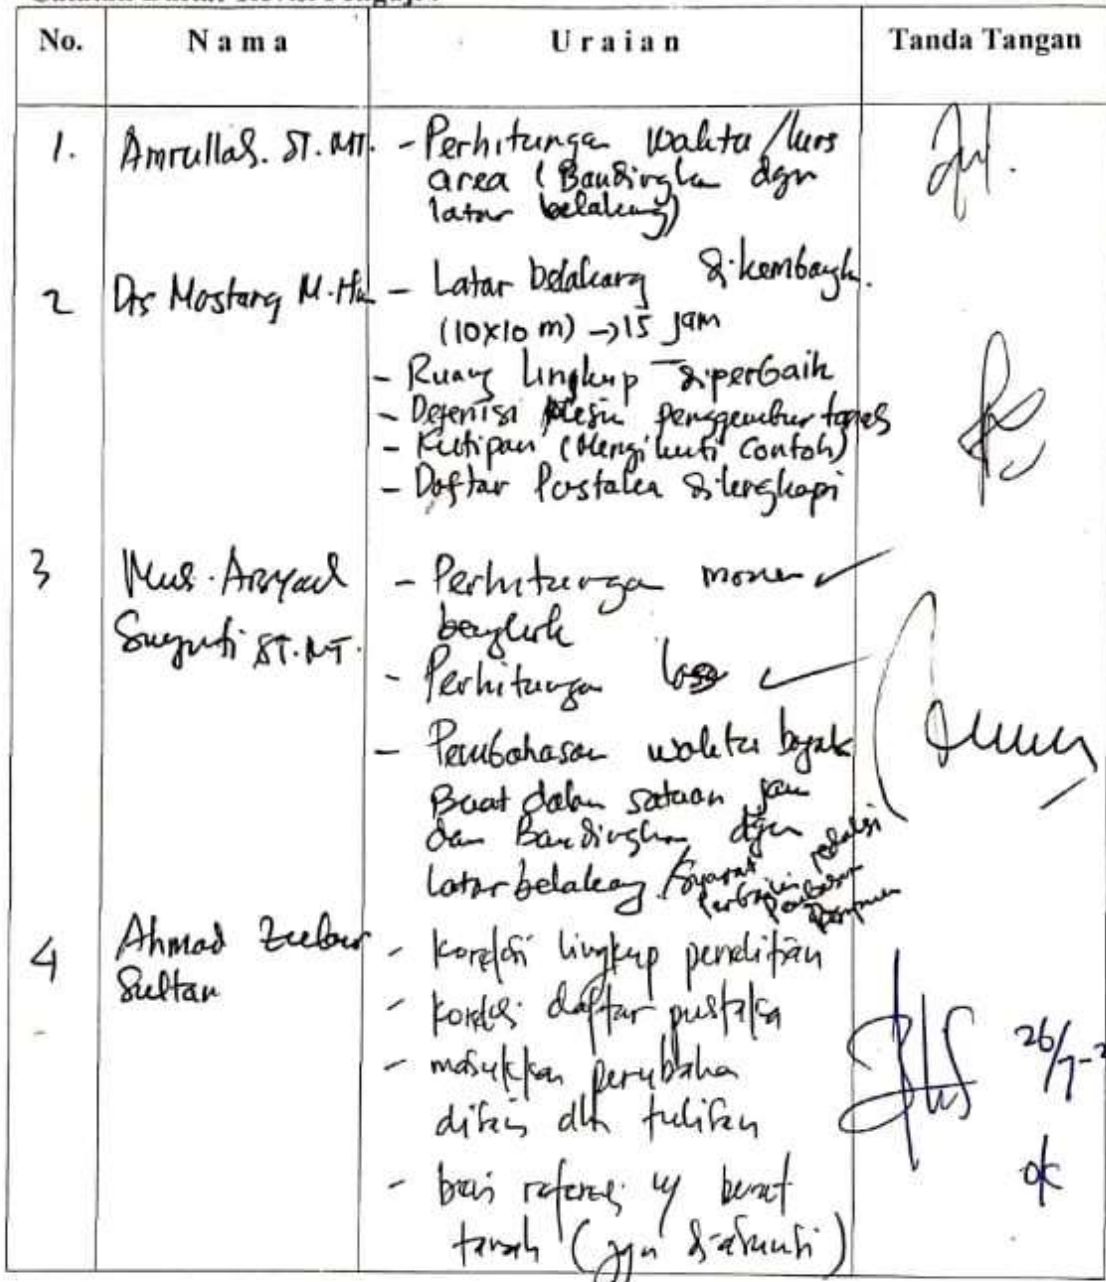 No. Nama Uraian Tanda Tangan
1. Amrullah. ST. MT. - Perhitungan Waktu / luas
area (Bandingkan dgn
latar belakang)
2 Drs Mastang M.Hum - Latar belakang dikembangk.
(10x10 m) → 15 jam
- Ruang lingkup diperbaiki
- Defenisi Mesin penggembur tanah
- Kutipan (Mengikuti Contoh)
- Daftar Pustaka dilengkapi
3 Muh. Arsyad - Perhitungan momen
Suyuti ST. MT. bengkok
- Perhitungan
- Pembahasan waktu bajak
Buat dalam satuan jam
dan Bandingkan dgn
latar belakang / Syarat
Perbaiki redaksi
4 Ahmad Zubair - koreksi lingkup penelitian
Sultan - koreksi daftar pustaka
- masukkan perubahan
disain dlm tulisan
26/7-2
- beri referensi berat ok
tanah (jgn di-asumsi)